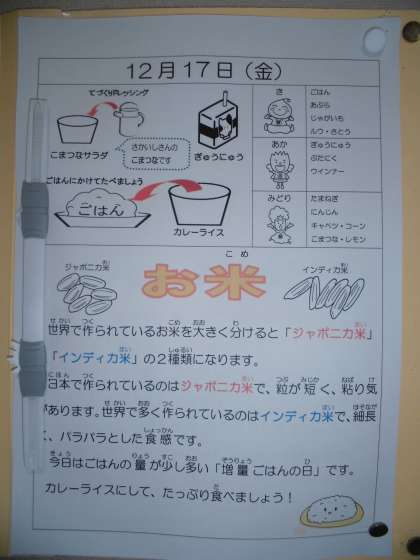 12月17日（金）
てづくりドレッシング
こまつなサラダ
さかいしさんの
こまつなです
ぎゅうにゅう
ごはんにかけてたべましょう
ごはん
カレーライス
き
ごはん
あぶら
じゃがいも
ルウ・さとう
あか
ぎゅうにゅう
ぶたにく
ウインナー
みどり
たまねぎ
にんじん
キャベツ・コーン
こまつな・レモン
ジャポニカ米
お米
インディカ米
世界で作られているお米を大きく分けると「ジャポニカ米」
「インディカ米」の２種類になります。
日本で作られているのはジャポニカ米で、粒が短く、粘り気
があります。世界で多く作られているのはインディカ米で、細長
く、パラパラとした食感です。
今日はごはんの量が少し多い「増量ごはんの日」です。
カレーライスにして、たっぷり食べましょう！